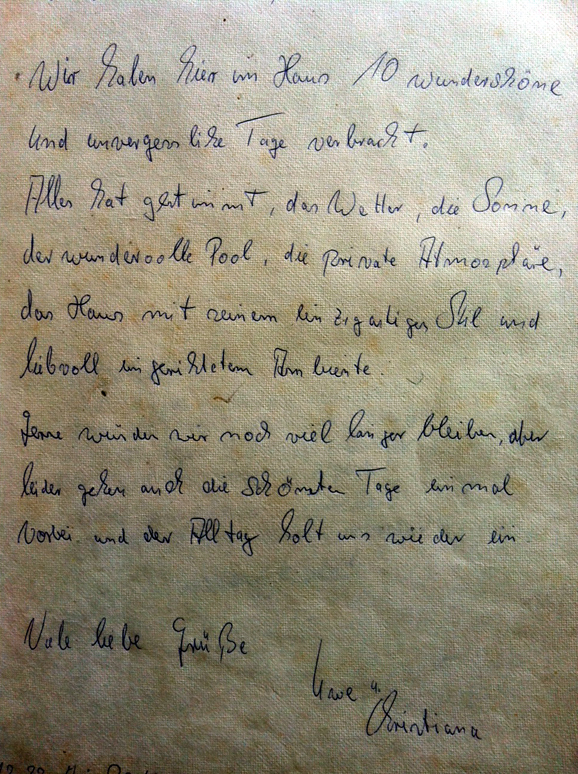 Wir haben hier im Haus 10 wunderschöne
und unvergessliche Tage verbracht.
Alles hat gestimmt, das Wetter, die Sonne,
der wundervolle Pool, die private Atmosphäre,
das Haus mit seinem einzigartigen Stil und
liebvoll eingerichtetem Ambiente.
Gerne würden wir noch viel länger bleiben, aber
leider gehen auch die schönsten Tage einmal
vorbei und der Alltag holt uns wieder ein.
Viele liebe Grüße
Uwe u.
Christiana